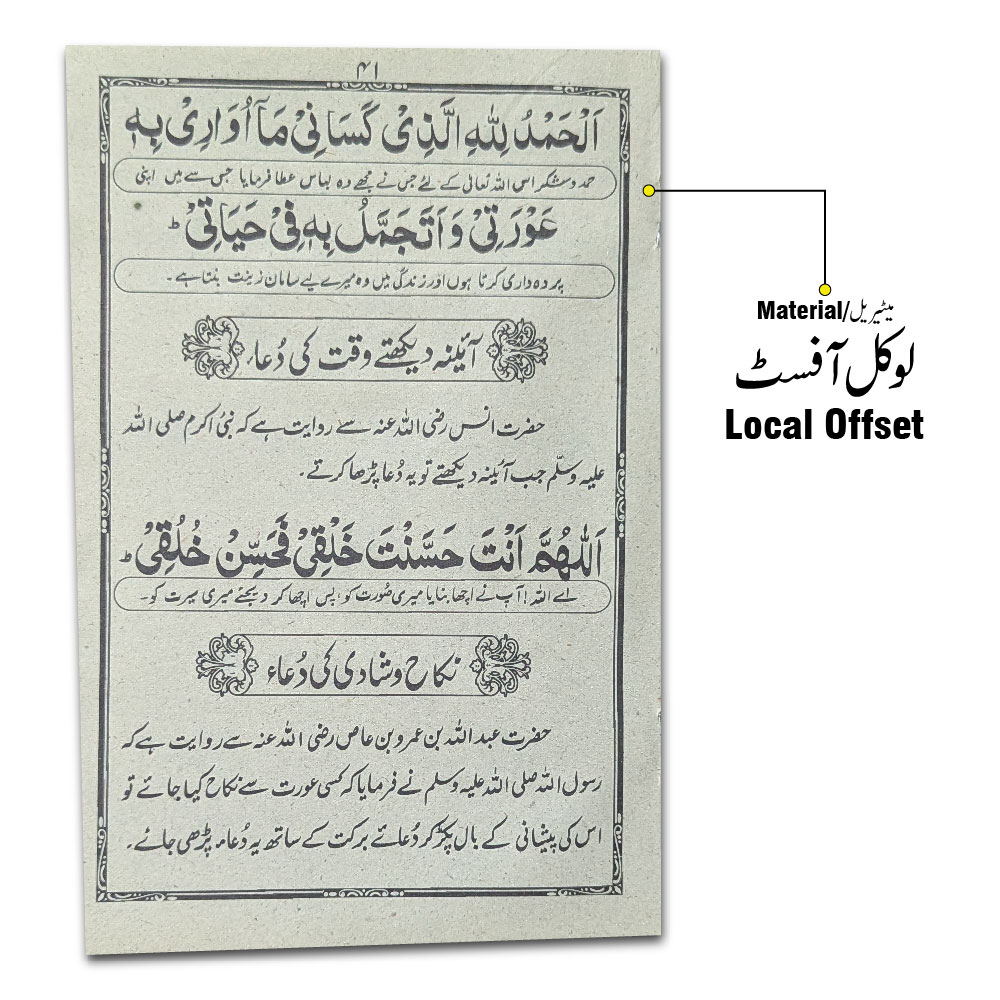 ۴۱
اَلْحَمْدُ لِلّٰهِ الَّذِیْ كَسَانِیْ مَآ اُوَارِیْ بِهٖ
حمد و شکر اس اللہ تعالیٰ کے لئے جس نے مجھے وہ لباس عطا فرمایا جس سے میں اپنی
عَوْرَتِیْ وَاَتَجَمَّلُ بِهٖ فِیْ حَیَاتِیْ ط
پردہ داری کرتا ہوں اور زندگی میں وہ میرے لیے سامان زینت بنتا ہے۔
آئینہ دیکھتے وقت کی دُعاء
حضرت انس رضی اللہ عنہ سے روایت ہے کہ نبیٔ اکرم صلی اللہ
علیہ وسلّم جب آئینہ دیکھتے تو یہ دُعا پڑھا کرتے۔
اَللّٰهُمَّ اَنْتَ حَسَّنْتَ خَلْقِیْ فَحَسِّنْ خُلُقِیْ ط
اے اللہ! آپ نے اچھا بنایا میری صُورت کو، پس اچھا کر دیجئے میری سیرت کو۔
نکاح و شادی کی دُعاء
حضرت عبد اللہ بن عمرو بن عاص رضی اللہ عنہ سے روایت ہے کہ
رسول اللہ صلی اللہ علیہ وسلم نے فرمایا کہ کسی عورت سے نکاح کیا جائے تو
اس کی پیشانی کے بال پکڑ کر دُعائے برکت کے ساتھ یہ دُعاء پڑھی جائے۔
Material/میٹیریل
لوکل آفسٹ
Local Offset